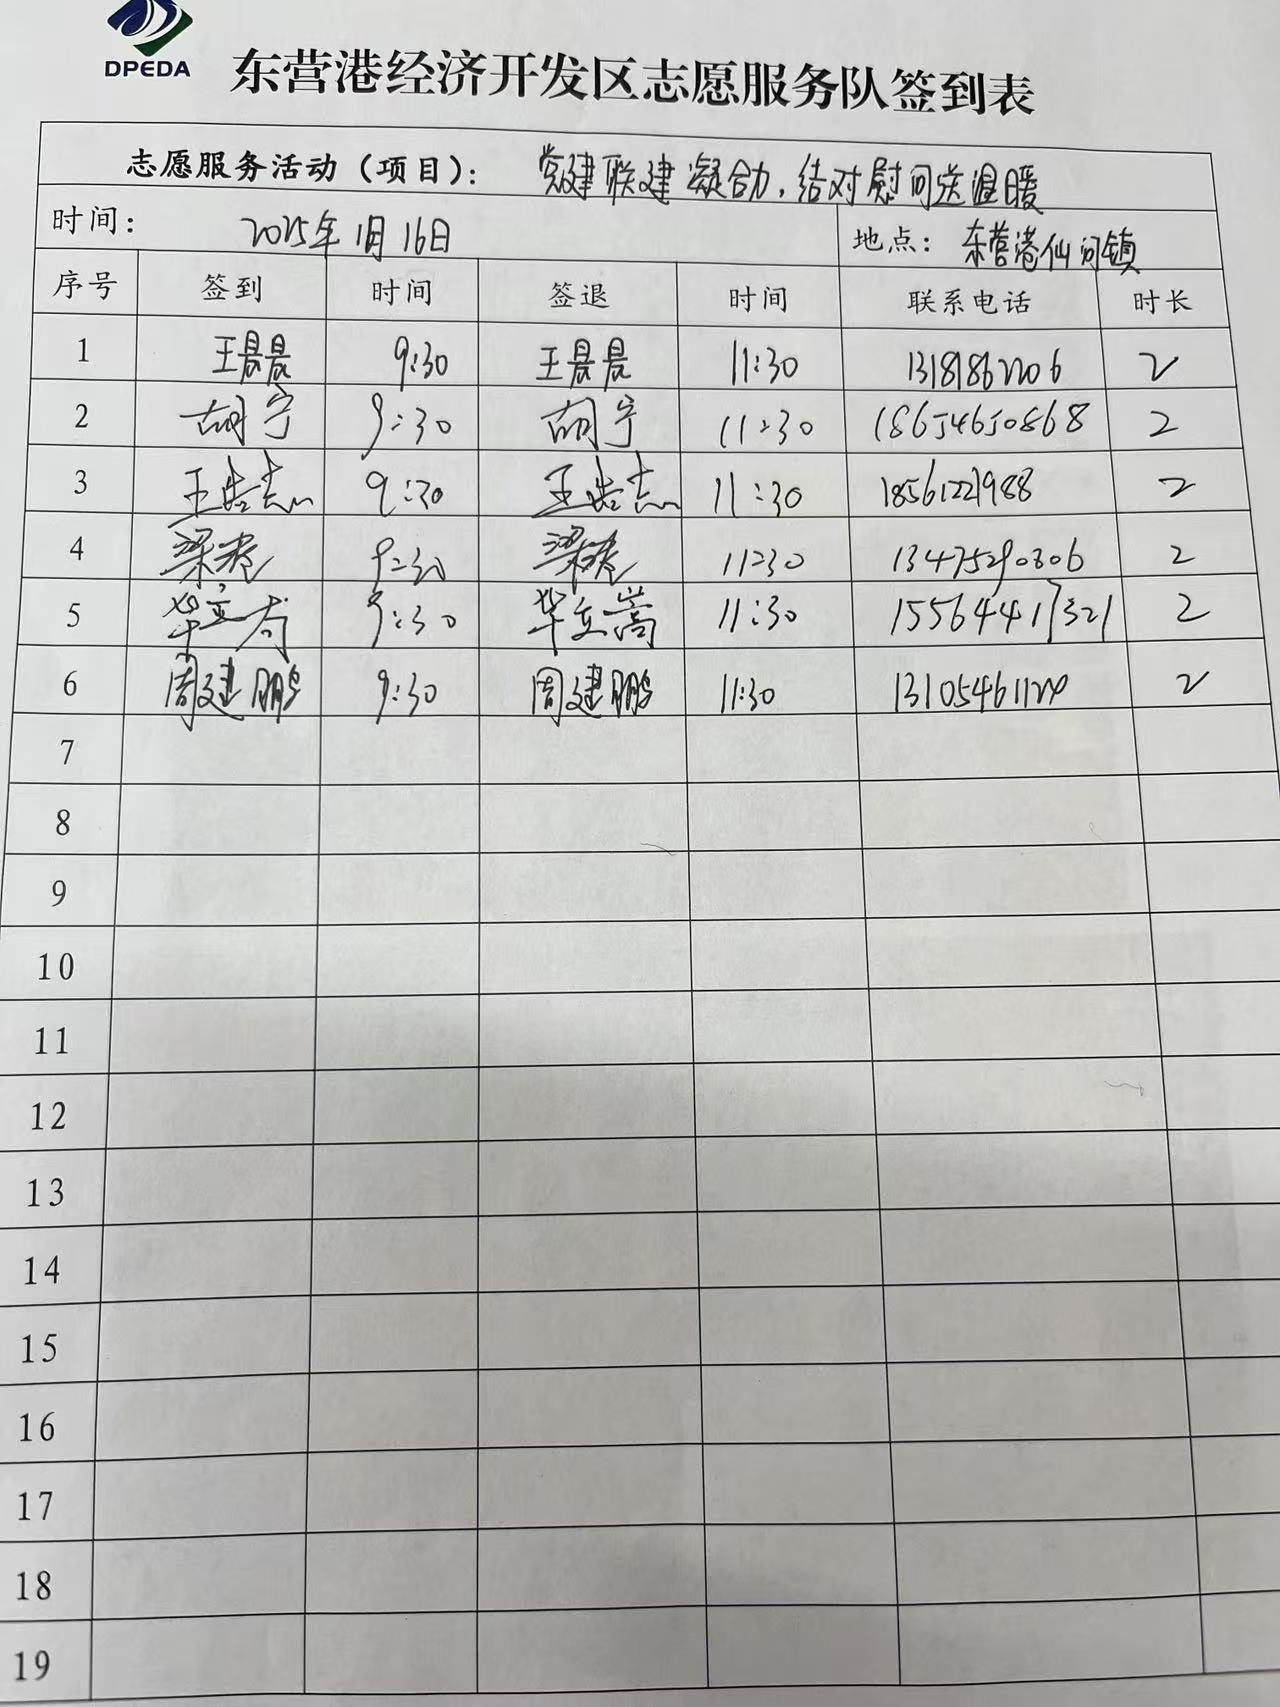 DPEDA
东营港经济开发区志愿服务队签到表
志愿服务活动（项目）： 党建联建凝合力，结对慰问送温暖
时间： 2025年1月16日 地点： 东营港仙河镇
序号 签到 时间 签退 时间 联系电话 时长
1 王晨晨 9:30 王晨晨 11:30 13181862206 2
2 胡宁 9:30 胡宁 11:30 18654650868 2
3 王浩志 9:30 王浩志 11:30 18561221988 2
4 梁 9:30 梁 11:30 13475290806 2
5 华立嵩 9:30 华立嵩 11:30 15564417321 2
6 周建鹏 9:30 周建鹏 11:30 13105461120 2
7
8
9
10
11
12
13
14
15
16
17
18
19